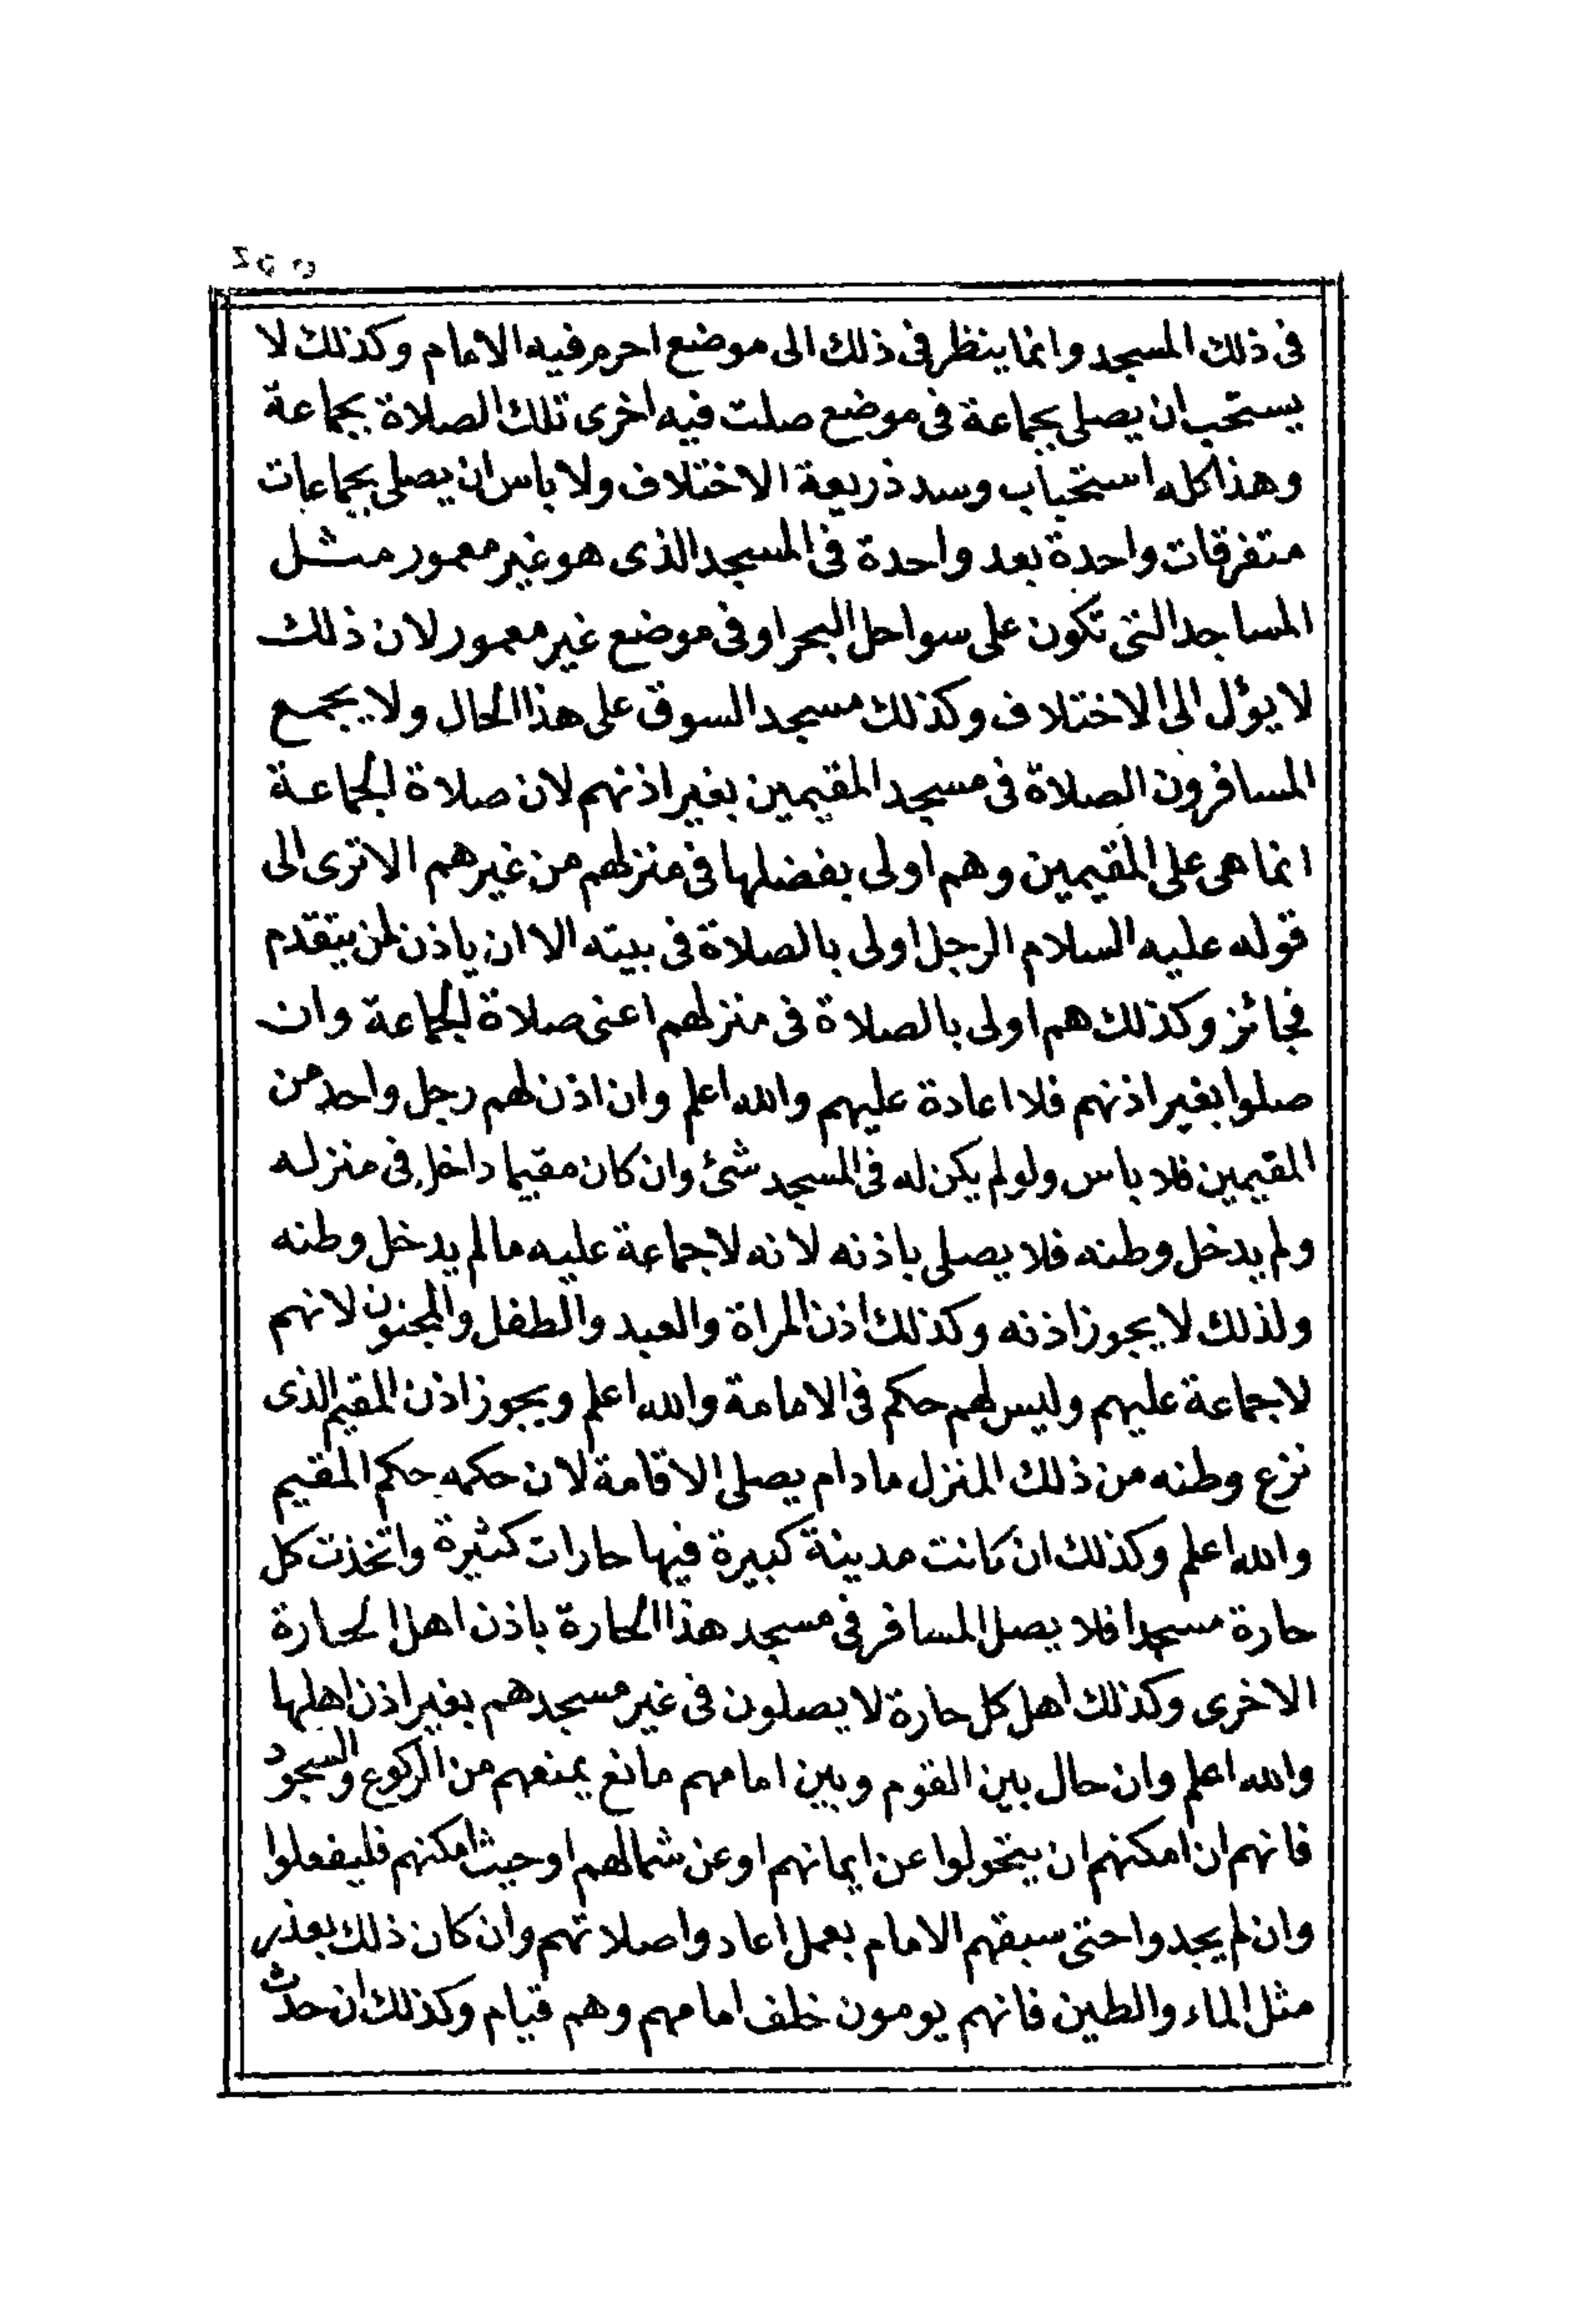 فى ذلك المسجد وانما ينظر فى ذلك الى موضع احرم فيه الامام وكذلك لا
يستحب ان يصلى بجماعة فى موضع صلت فيه اخرى تلك الصلاة بجماعة
وهذا كله استحباب وسد ذريعة الاختلاف ولا باس ان يصلى بجماعات
متفرقات واحدة بعد واحدة فى المسجد الذى هو غير معمور مثل
المساجد التى تكون على سواحل البحر او فى موضع غير معمور لان ذلك
لا يؤل الى الاختلاف وكذلك مسجد السوق على هذا الحال ولا يجمع
المسافرون الصلاة فى مسجد المقيمين بغير اذنهم لان صلاة الجماعة
انما هى على المقيمين وهم اولى بفضلها فى منزلهم من غيرهم الا ترى الى
قوله عليه السلام الرجل اولى بالصلاة فى بيته الا ان ياذن لمن يتقدم
فجائز وكذلك هم اولى بالصلاة فى منزلهم اعنى صلاة الجماعة وان
صلوا بغير اذنهم فلا اعادة عليهم والله اعلم وان اذن لهم رجل واحد من
المقيمين فلا باس ولو لم يكن له فى المسجد شئ وان كان مقيما داخل فى منزله
ولم يدخل وطنه فلا يصلى باذنه لانه لا جماعة عليه ما لم يدخل وطنه
ولذلك لا يجوز اذنه وكذلك اذن المراة والعبد والطفل والمجنون لانهم
لا جماعة عليهم وليس لهم حكم فى الامامة والله اعلم ويجوز اذن المقيم الذى
نزع وطنه من ذلك المنزل ما دام يصلى الاقامة لان حكمه حكم المقيم
والله اعلم وكذلك ان كانت مدينة كبيرة فيها حارات كثيرة واتخذت كل
حارة مسجدا فلا يصل المسافر فى مسجد هذا الحارة باذن اهل الحارة
الاخرى وكذلك اهل كل حارة لا يصلون فى غير مسجدهم بغير اذن اهلها
والله اعلم وان حال بين القوم وبين امامهم مانع يمنعهم من الركوع والسجود
فانهم ان امكنهم ان يتحولوا عن ايمانهم او عن شمالهم او حيث امكنهم فليفعلوا
وان لم يجدوا حتى سبقهم الامام بعمل اعادوا صلاتهم وان كان ذلك بعذر
مثل الماء والطين فانهم يومون خلف امامهم وهم قيام وكذلك ان حدث